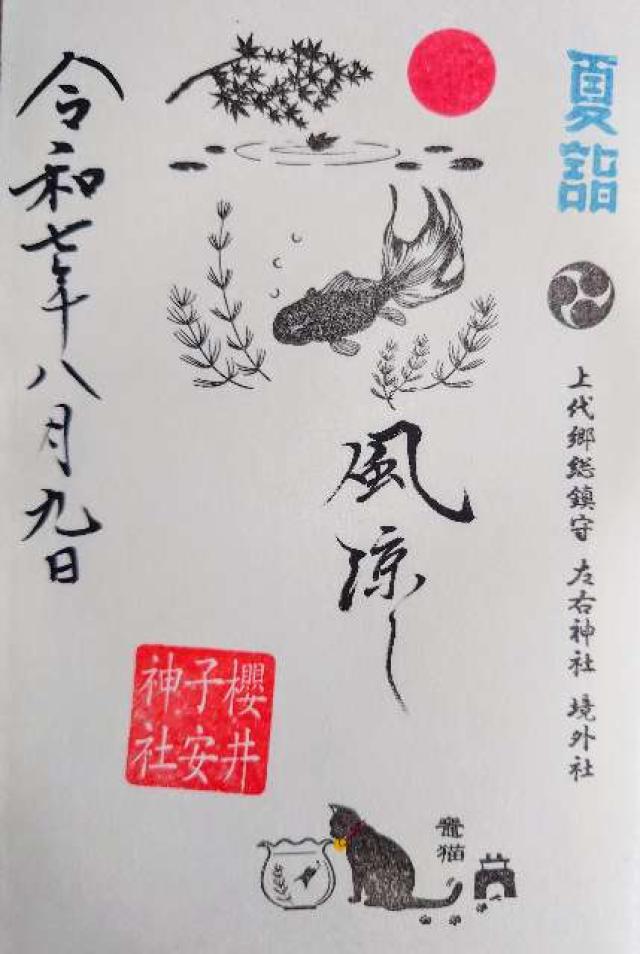 夏詣
上代郷総鎮守 左右神社 境外社
風涼し
令和七年八月九日
櫻井
子安
神社
竈猫